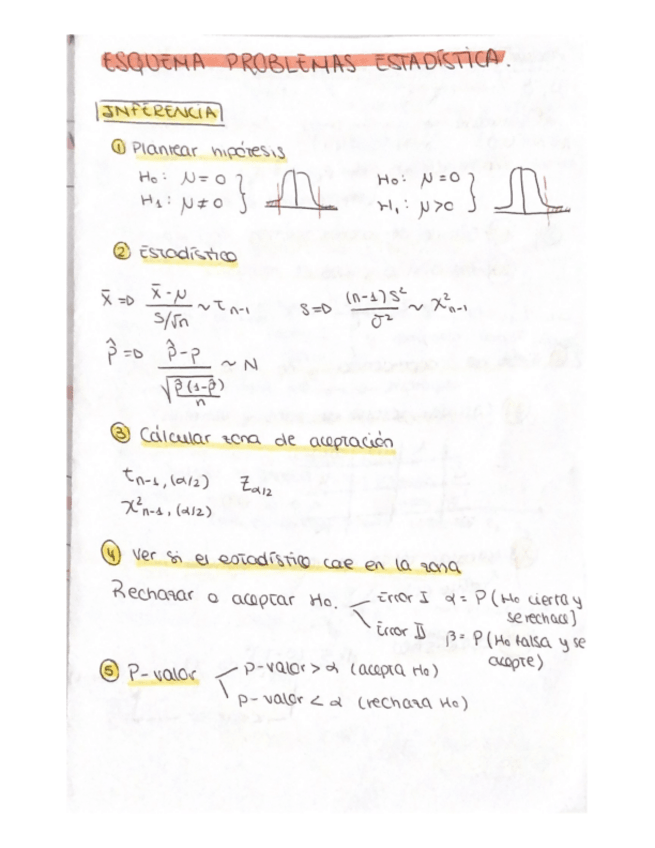 ESQUEMA PROBLEMAS ESTADÍSTICA.
INFERENCIA
① Plantear hipótesis
H₀: μ = 0 } H₀: μ = 0 }
H₁: μ ≠ 0 } H₁: μ > 0 }
② Estadístico
x̄ => (x̄ - μ)/(s/√n) ~ t n-1 S => (n-1)S²/σ² ~ χ² n-1
p̂ => (p̂ - p)/√(p̂(1-p̂)/n) ~ N
③ Cálcular zona de aceptación
t n-1, (α/2) Z α/2
χ² n-1, (α/2)
④ Ver si el estadístico cae en la zona
Rechazar o aceptar H₀. Error I α = P(H₀ cierta y
se rechace)
Error II β = P(H₀ falsa y se
acepte)
⑤ P-valor P-valor > α (acepta H₀)
P-valor < α (rechaza H₀)